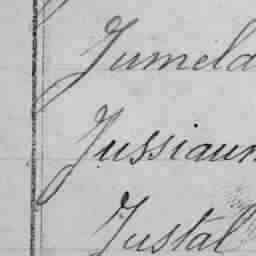 Jumela
Jussiaum
Justal